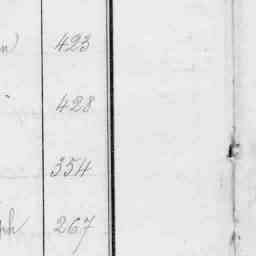 n) 423
428
354
ph 267